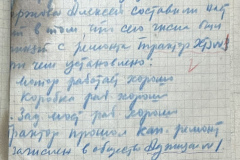 Алексей составили акт
в том что сего числа был
с ремонта трактор ХТЗ
чем установлено:
мотор работает хорошо
Коробка раб. хорошо
Зад мост раб хорошо
трактор прошол кап. ремонт
зачислен в